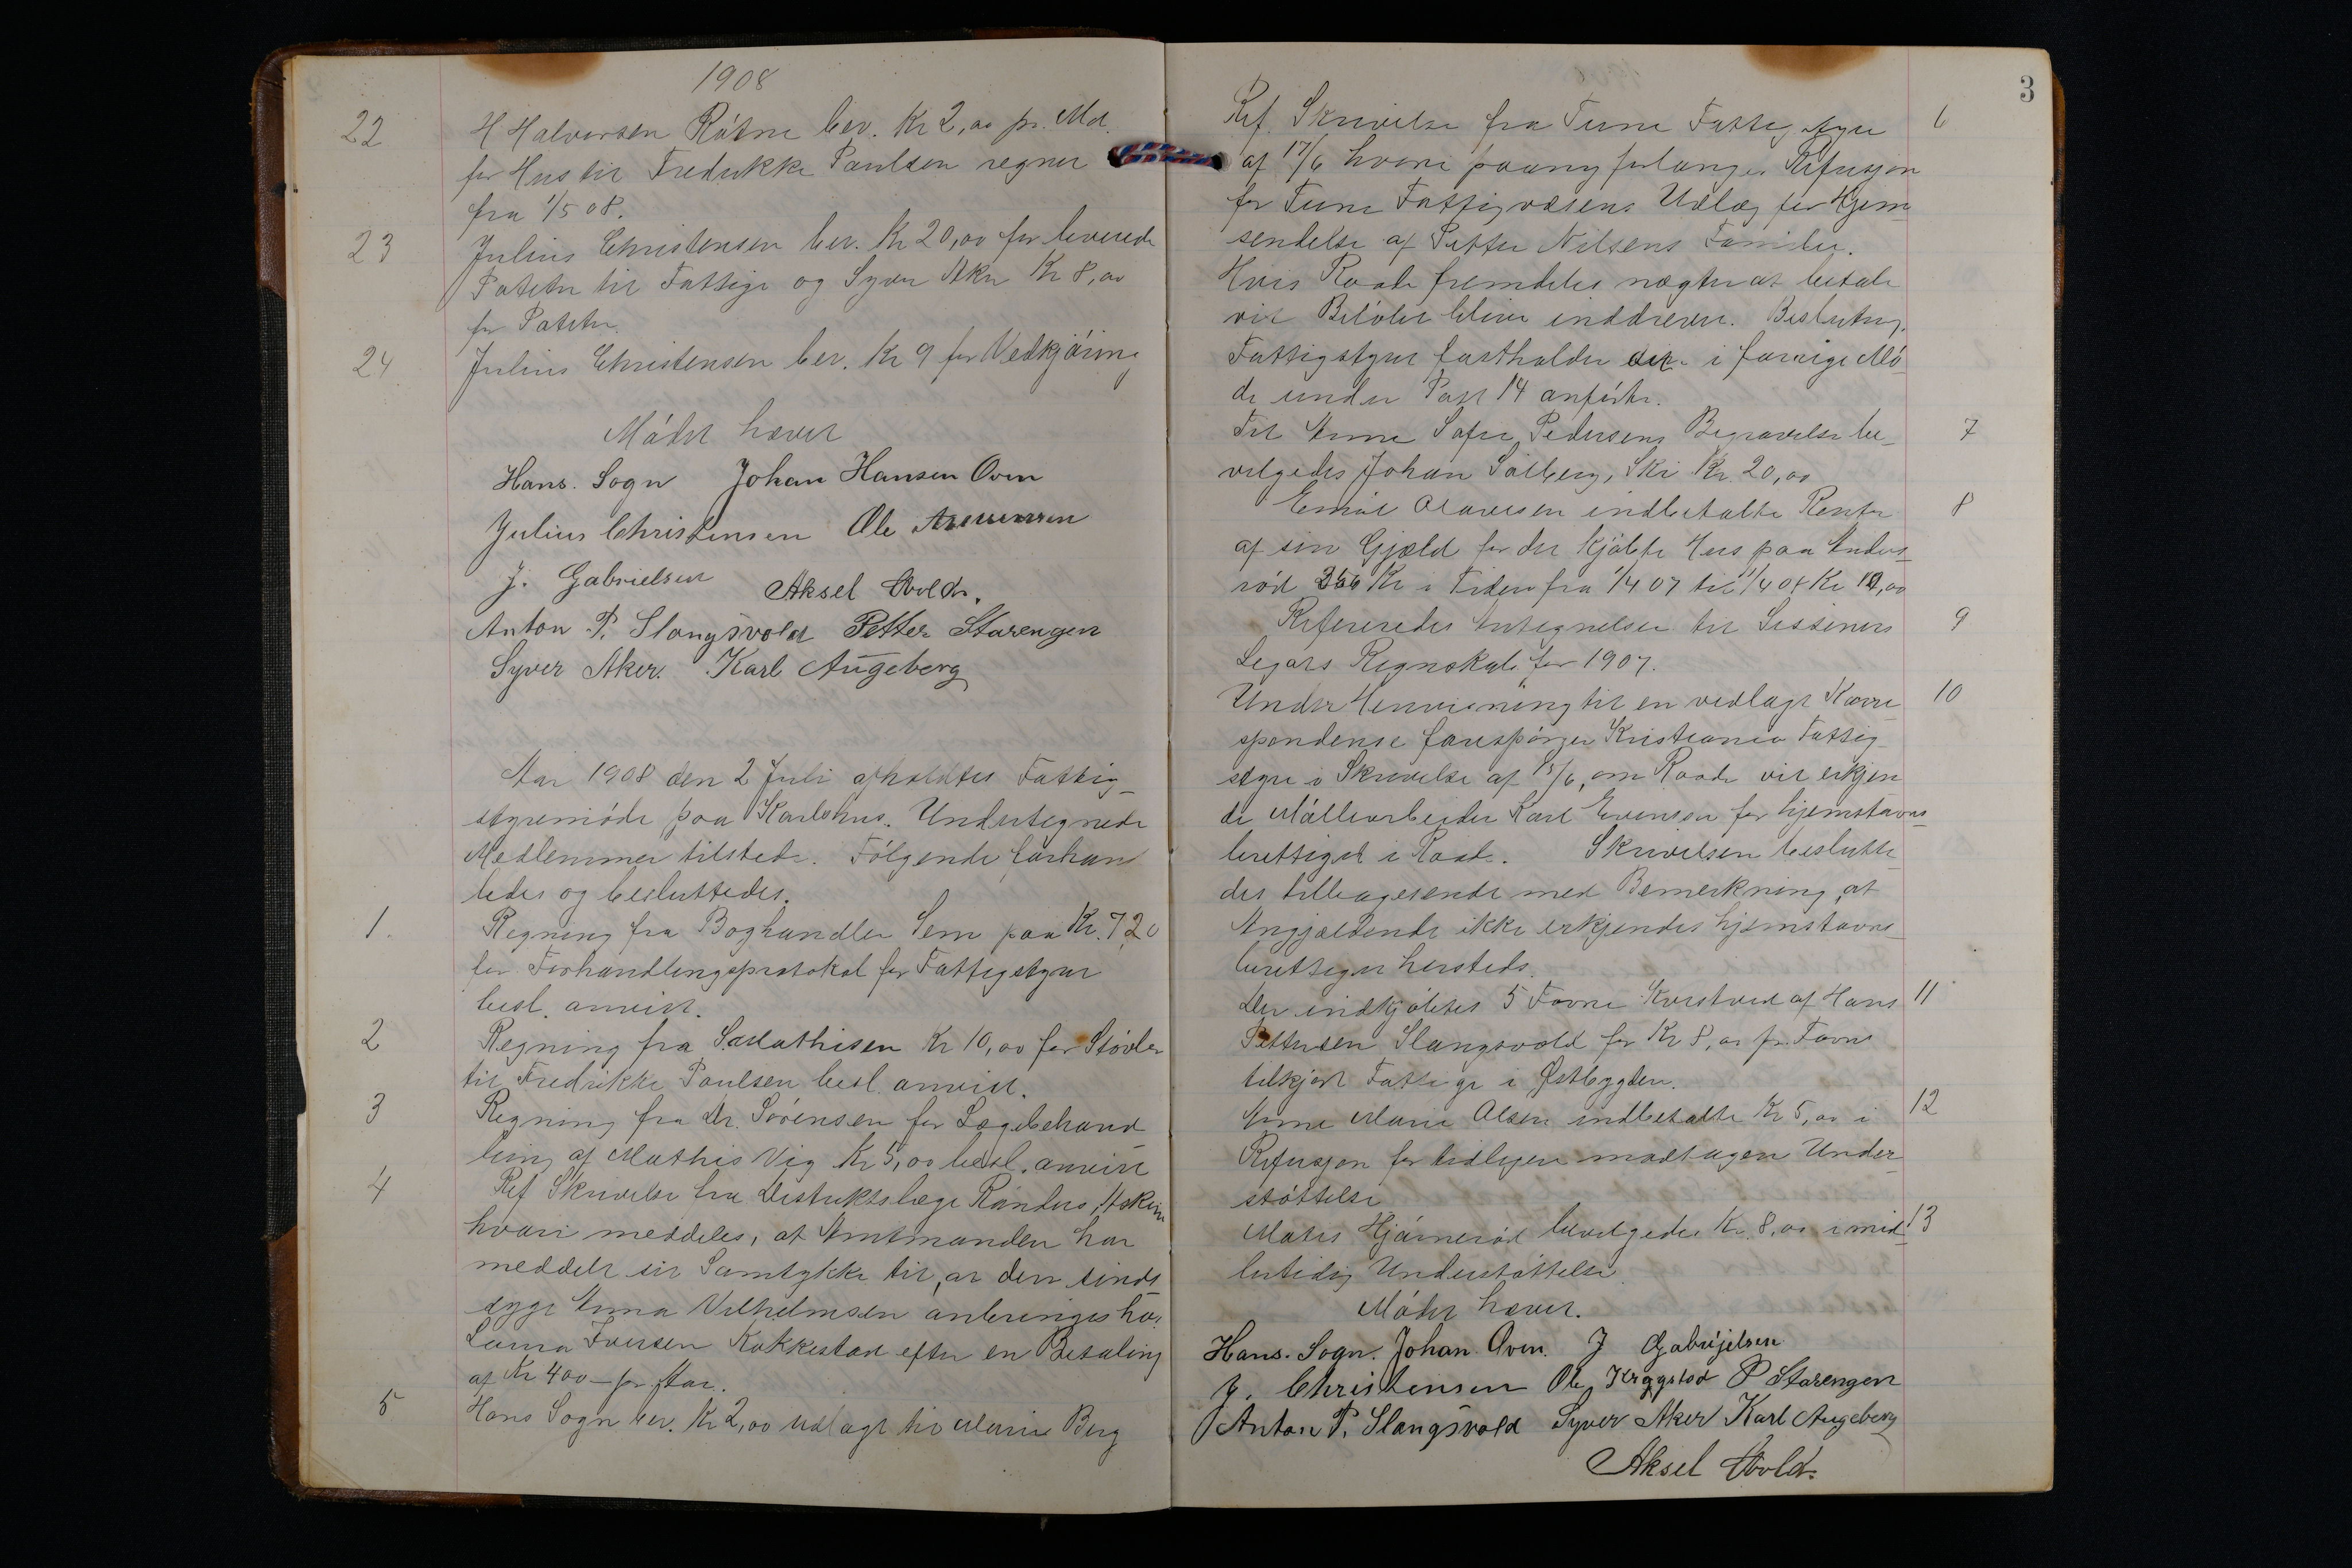 1908
22 H Halvorsen Råtne bev. Kr 2,00 pr. Md.
for Hus til Fredrikke Paulsen regnet
fra 1/5 08.
23 Julius Christensen bev. Kr 20,00 for leverede
Poteter til Fattige og Syver Aker Kr 8,00
for Poteter.
24 Julius Christensen bev. Kr 9 for Vedkjöring
Mödet hævet
Hans. Sogn Johan Hansen Oven
Julius Christensen Ole
J. Gabrielsen Aksel Vold.
Anton P. Slangsvold Petter Starengen
Syver Aker. Karl Augeberg
Aar 1908 den 2 Juli afholdtes Fattig-
styremöde paa Karlshus. Undertegnede
Medlemmer tilstede. Fölgende forhand
ledes og besluttedes.
1. Regning fra Boghandler Sem paa Kr. 7,20
for Forhandlingsprotokol for Fattigstyret
besl. anvist.
2 Regning fra S. Mathisen Kr 10,00 for Stövler
til Fredrikke Paulsen besl. anvist.
3 Regning fra Dr. Sörensen for Lægebehand
ling af Mathis Vig Kr 5,00 besl. anvist
4 Ref Skrivelse fra Distriktslæge Randers, Askim
hvori meddeles, at Amtmanden har
meddelt sit Samtykke til, at den sinds
syge Anna Vilhelmsen anbringes hos
Laura Iversen Kokkestad efter en Betaling
af Kr 400 – pr Aar.
5 Hans Sogn bev. Kr 2,00 udlagt til Marie Berg
3
Ref. Skrivelse fra Tune Fattigstyre 6
af 17/6 hvori paany forlanges Refusjon
for Tune Fattigvæsens Udlæg for Hjem
sendelse af Petter Nilsens Familie.
Hvis Raade fremdeles nægter at betale
vil Belöbet blive inddrevet. Beslutning.
Fattigstyret fastholder det i forrige Mö
de under Post 14 anförte.
Til Anne Sofie Pedersens Begravelse be- 7
vilgedes Johan Solberg, Ski Kr. 20,00
Emil Olavesen indbetalte Renter 8
af sin Gjæld for det kjöbte Hus paa Anders
röd 366 Kr i Tiden fra 1/4 07 til 1/4 08 Kr 10,00
Refereredes Antegnelser til Sissiners 9
Legats Regnskab for 1907.
Under Henvisning til en vedlagt Korre 10
spondense forespörger Kristiania Fattig
styre i Skrivelse af 15/6, om Raade vil erkjen
de Möllearbeider Karl Evensen for hjemstavns-
berettiget i Raade. Skrivelsen beslutte
des tilbagesendt med Bemerkning, at
Angjældende ikke erkjendes hjemstavns-
berettiget hersteds.
Der indkjöbtes 5 Favne Kvistved af Hans 11
Pettersen Slangsvold for Kr 8,00 pr. Favn
tilkjört Fattige i Østbygden.
Anne Marie Olsen indbetalte Kr 5,00 i 12
Refusjon for tidligere modtagen Under-
stöttelse
Mates Hjörneröd bevilgedes Kr. 8,00 i mid- 13
lertidig Understöttelse.
Mödet hævet.
Hans. Sogn. Johan Oven. J Gabrijelsen
J. Christensen Ole Kryggstod P Starengen
Anton P. Slangsvold Syver Aker Karl Augeberg
Aksel Vold.